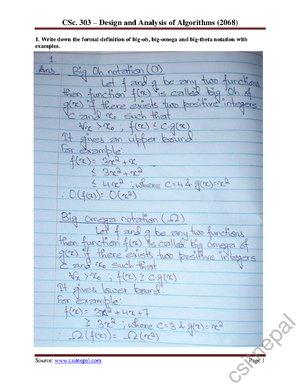 CSc. 303 – Design and Analysis of Algorithms (2068)
1. Write down the formal definition of big-oh, big-omega and big-theta notation with
examples.
1
Ans. Big Oh notation (O)
Let f and g be any two functions
then function f(x) is called big Oh of
g(x) if there exists two positive integers
c and x₀ such that
∀x > x₀, f(x) ≤ c g(x)
It gives an upper bound
For example
f(x) = 3x² + x
≤ 3x² + x²
≤ 4x², where c=4 & g(x)=x²
∴ O(f(x)) = O(x²)
Big omega notation (Ω)
Let f and g be any two functions
then function f(x) is called big omega of
g(x) if there exists two positive integers
c and x₀ such that
∀x > x₀, f(x) ≥ c g(x)
It gives lower bound
For example:
f(x) = 3x² + 4x + 7
≥ 3x²; where c=3 & g(x)=x²
Ω(f(x)) = Ω(x²)
csitnepal
Source: www.csitnepal.com Page 1